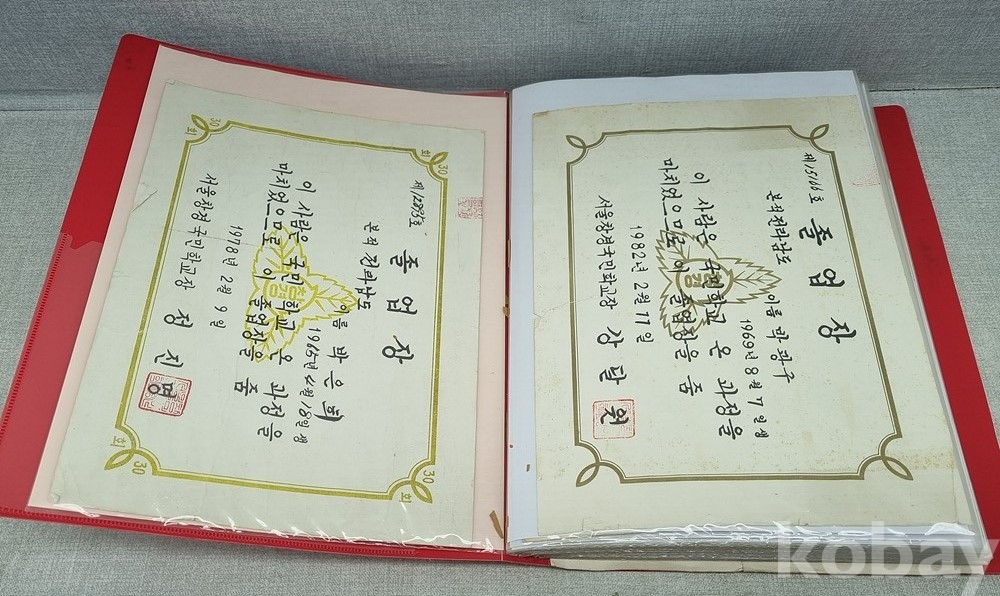 30회
30회
30회
30회
졸업장
본적 전라남도
이름 박은희
1965년 4월 18일생
이 사람은 국민학교 온 과정을
마치었으므로 이 졸업장을 줌
1978년 2월 9일
서울창경국민학교장 정진명
창경
제15166호
졸업장
본적 전라남도
이름 박광
1969년 8월 7일생
이 사람은 국민학교 온 과정을
마치었으므로 이 졸업장을 줌
1982년 2월 11일
서울창경국민학교장 상달원
창경
kobay